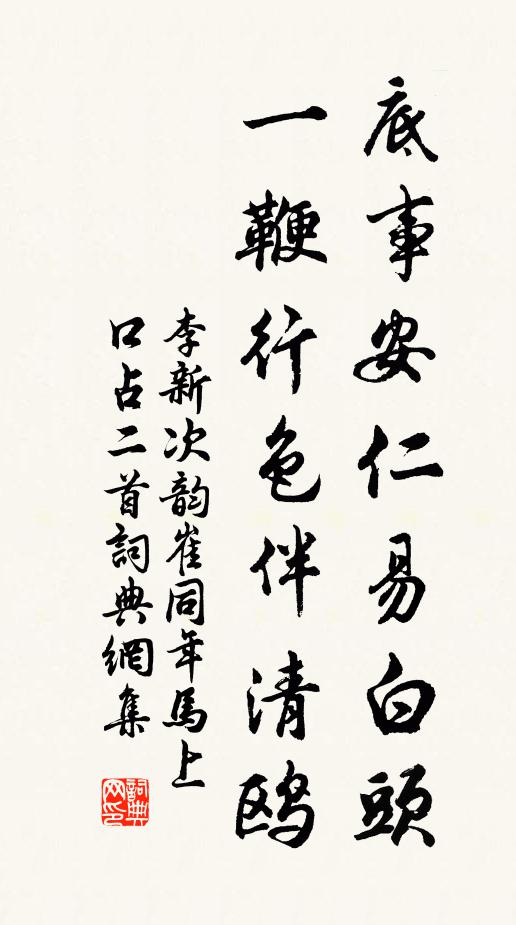 底事安仁易白頭
一鞭行色伴清鷗
李新次韵崔同年馬上
口占二首詞典網集
詞典网印